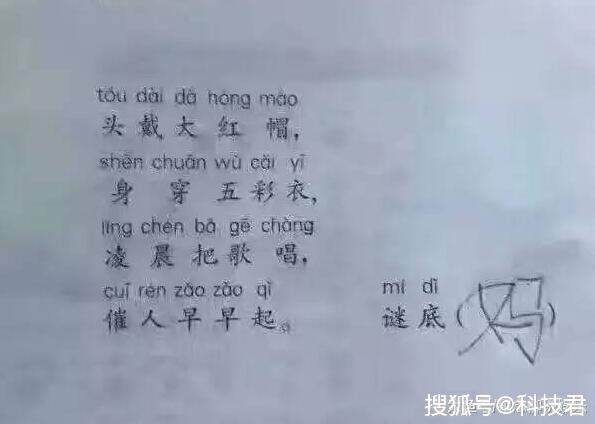 tóu dài dà hóng mào
头戴大红帽，
shēn chuān wǔ cǎi yī
身穿五彩衣，
líng chén bǎ gē chàng
凌晨把歌唱，
cuī rén zǎo zǎo qǐ
催人早早起。
mí dǐ
谜底（妈）
搜狐号@科技君